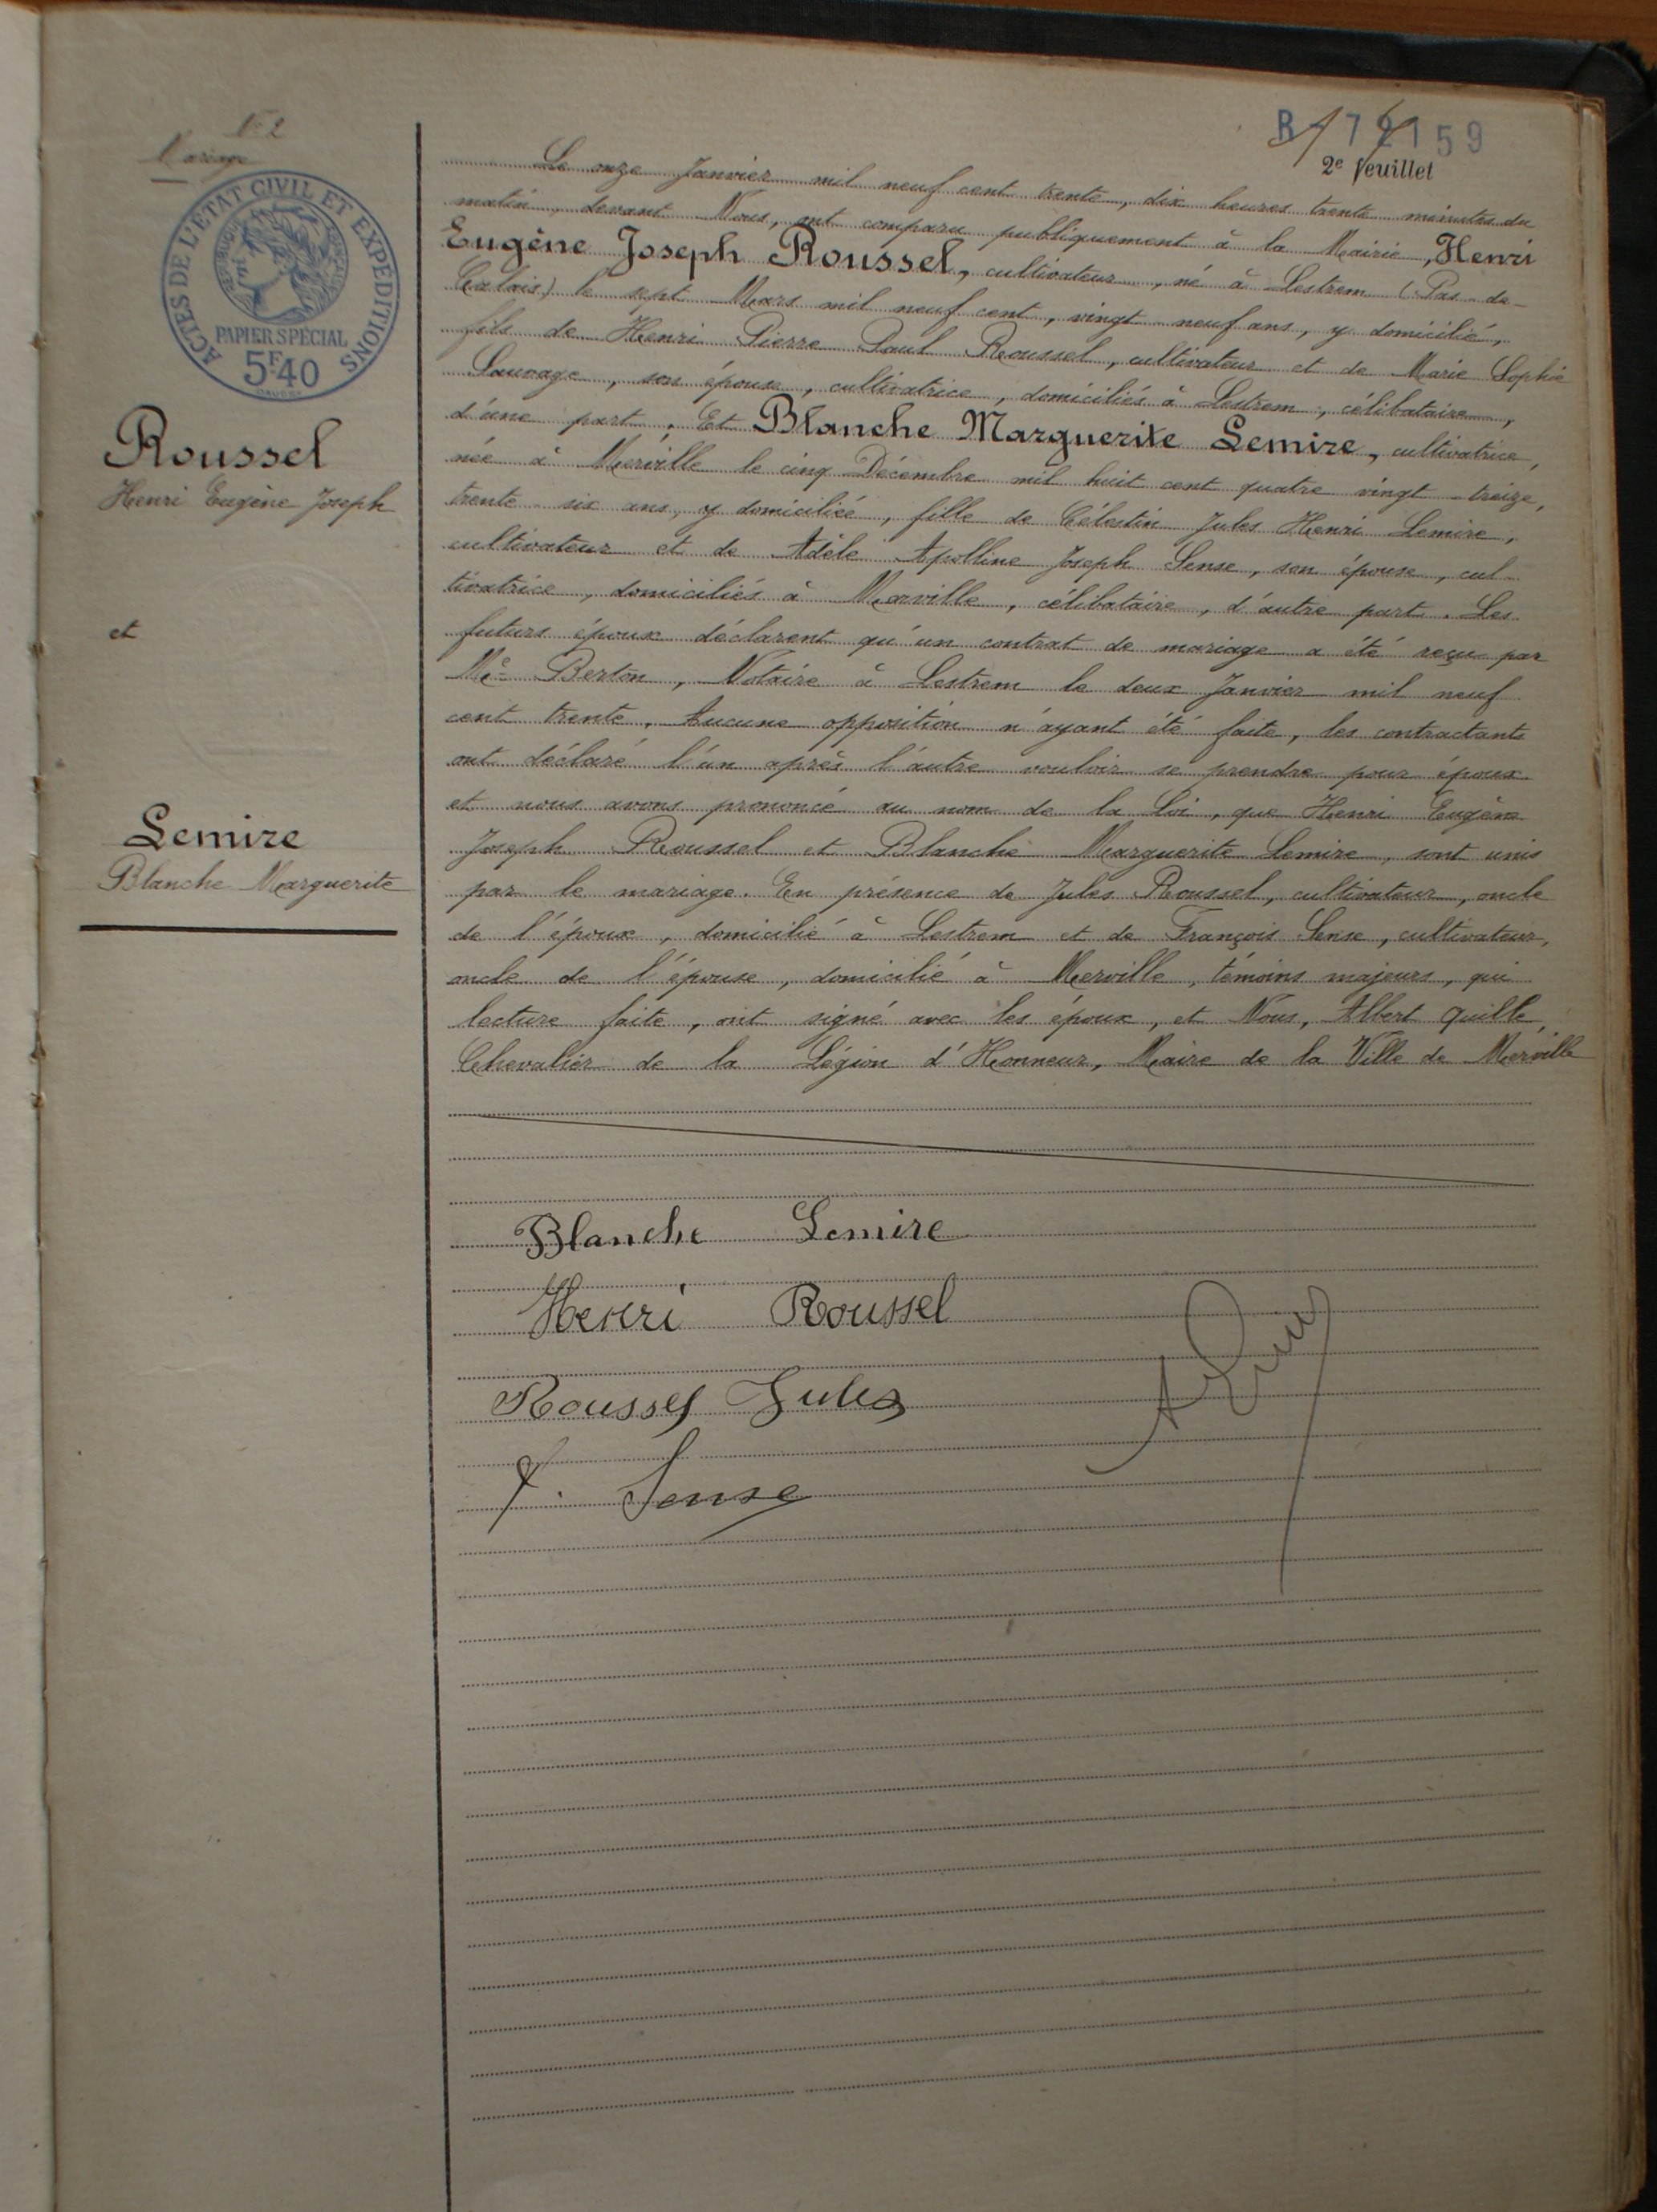 N° 2
Mariage
ACTES DE L'ÉTAT CIVIL ET EXPÉDITIONS
RÉPUBLIQUE FRANÇAISE
PAPIER SPÉCIAL
5F.40
Roussel
Henri Eugène Joseph
et
Lemire
Blanche Marguerite
2e feuillet
Le onze Janvier mil neuf cent trente, dix heures trente minutes du
matin, devant Nous, ont comparu publiquement à la Mairie, Henri
Eugène Joseph Roussel, cultivateur, né à Lestrem (Pas-de-
Calais) le sept Mars mil neuf cent, vingt-neuf ans, y domicilié,
fils de Henri Pierre Paul Roussel, cultivateur et de Marie Sophie
Sauvage, son épouse, cultivatrice, domiciliés à Lestrem, célibataire,
d'une part. Et Blanche Marguerite Lemire, cultivatrice,
née à Merville le cinq Décembre mil huit cent quatre vingt-treize,
trente-six ans, y domiciliée, fille de Célestin Jules Henri Lemire,
cultivateur et de Adèle Apolline Joseph Sense, son épouse, cul-
tivatrice, domiciliés à Merville, célibataire, d'autre part. Les
futurs époux déclarent qu'un contrat de mariage a été reçu par
Me Berton, Notaire à Lestrem le deux Janvier mil neuf
cent trente. Aucune opposition n'ayant été faite, les contractants
ont déclaré l'un après l'autre vouloir se prendre pour époux
et nous avons prononcé au nom de la Loi, que Henri Eugène
Joseph Roussel et Blanche Marguerite Lemire, sont unis
par le mariage. En présence de Jules Roussel, cultivateur, oncle
de l'époux, domicilié à Lestrem et de François Sense, cultivateur,
oncle de l'épouse, domicilié à Merville, témoins majeurs, qui
lecture faite, ont signé avec les époux, et Nous, Albert Quille,
Chevalier de la Légion d'Honneur, Maire de la Ville de Merville
Blanche Lemire
Henri Roussel
Roussel Jules
F. Sense